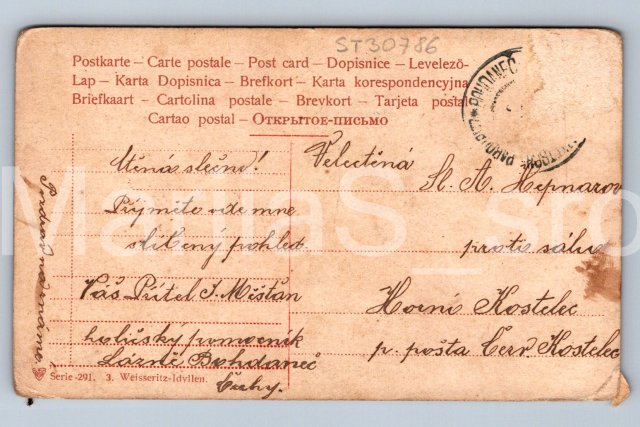 ST30786
Postkarte – Carte postale – Post card – Dopisnice – Levelező-
Lap – Karta Dopisnica – Brefkort – Karta korespondencyjna
Briefkaart – Cartolina postale – Brevkort – Tarjeta postal
Cartao postal – Открытое-письмо
BOHDANEČ
Ctěná slečno!
Přijměte ode mne
slíbený pohled
Váš Přítel J. Mišťan
holičský pomocník
Lázně Bohdaneč
Čechy.
Velectěná
Sl. A. Hepnarov
proti sálu
Horní Kostelec
p. pošta Červ. Kostelec
Serie-291. 3. Weisseritz-Idyllen.